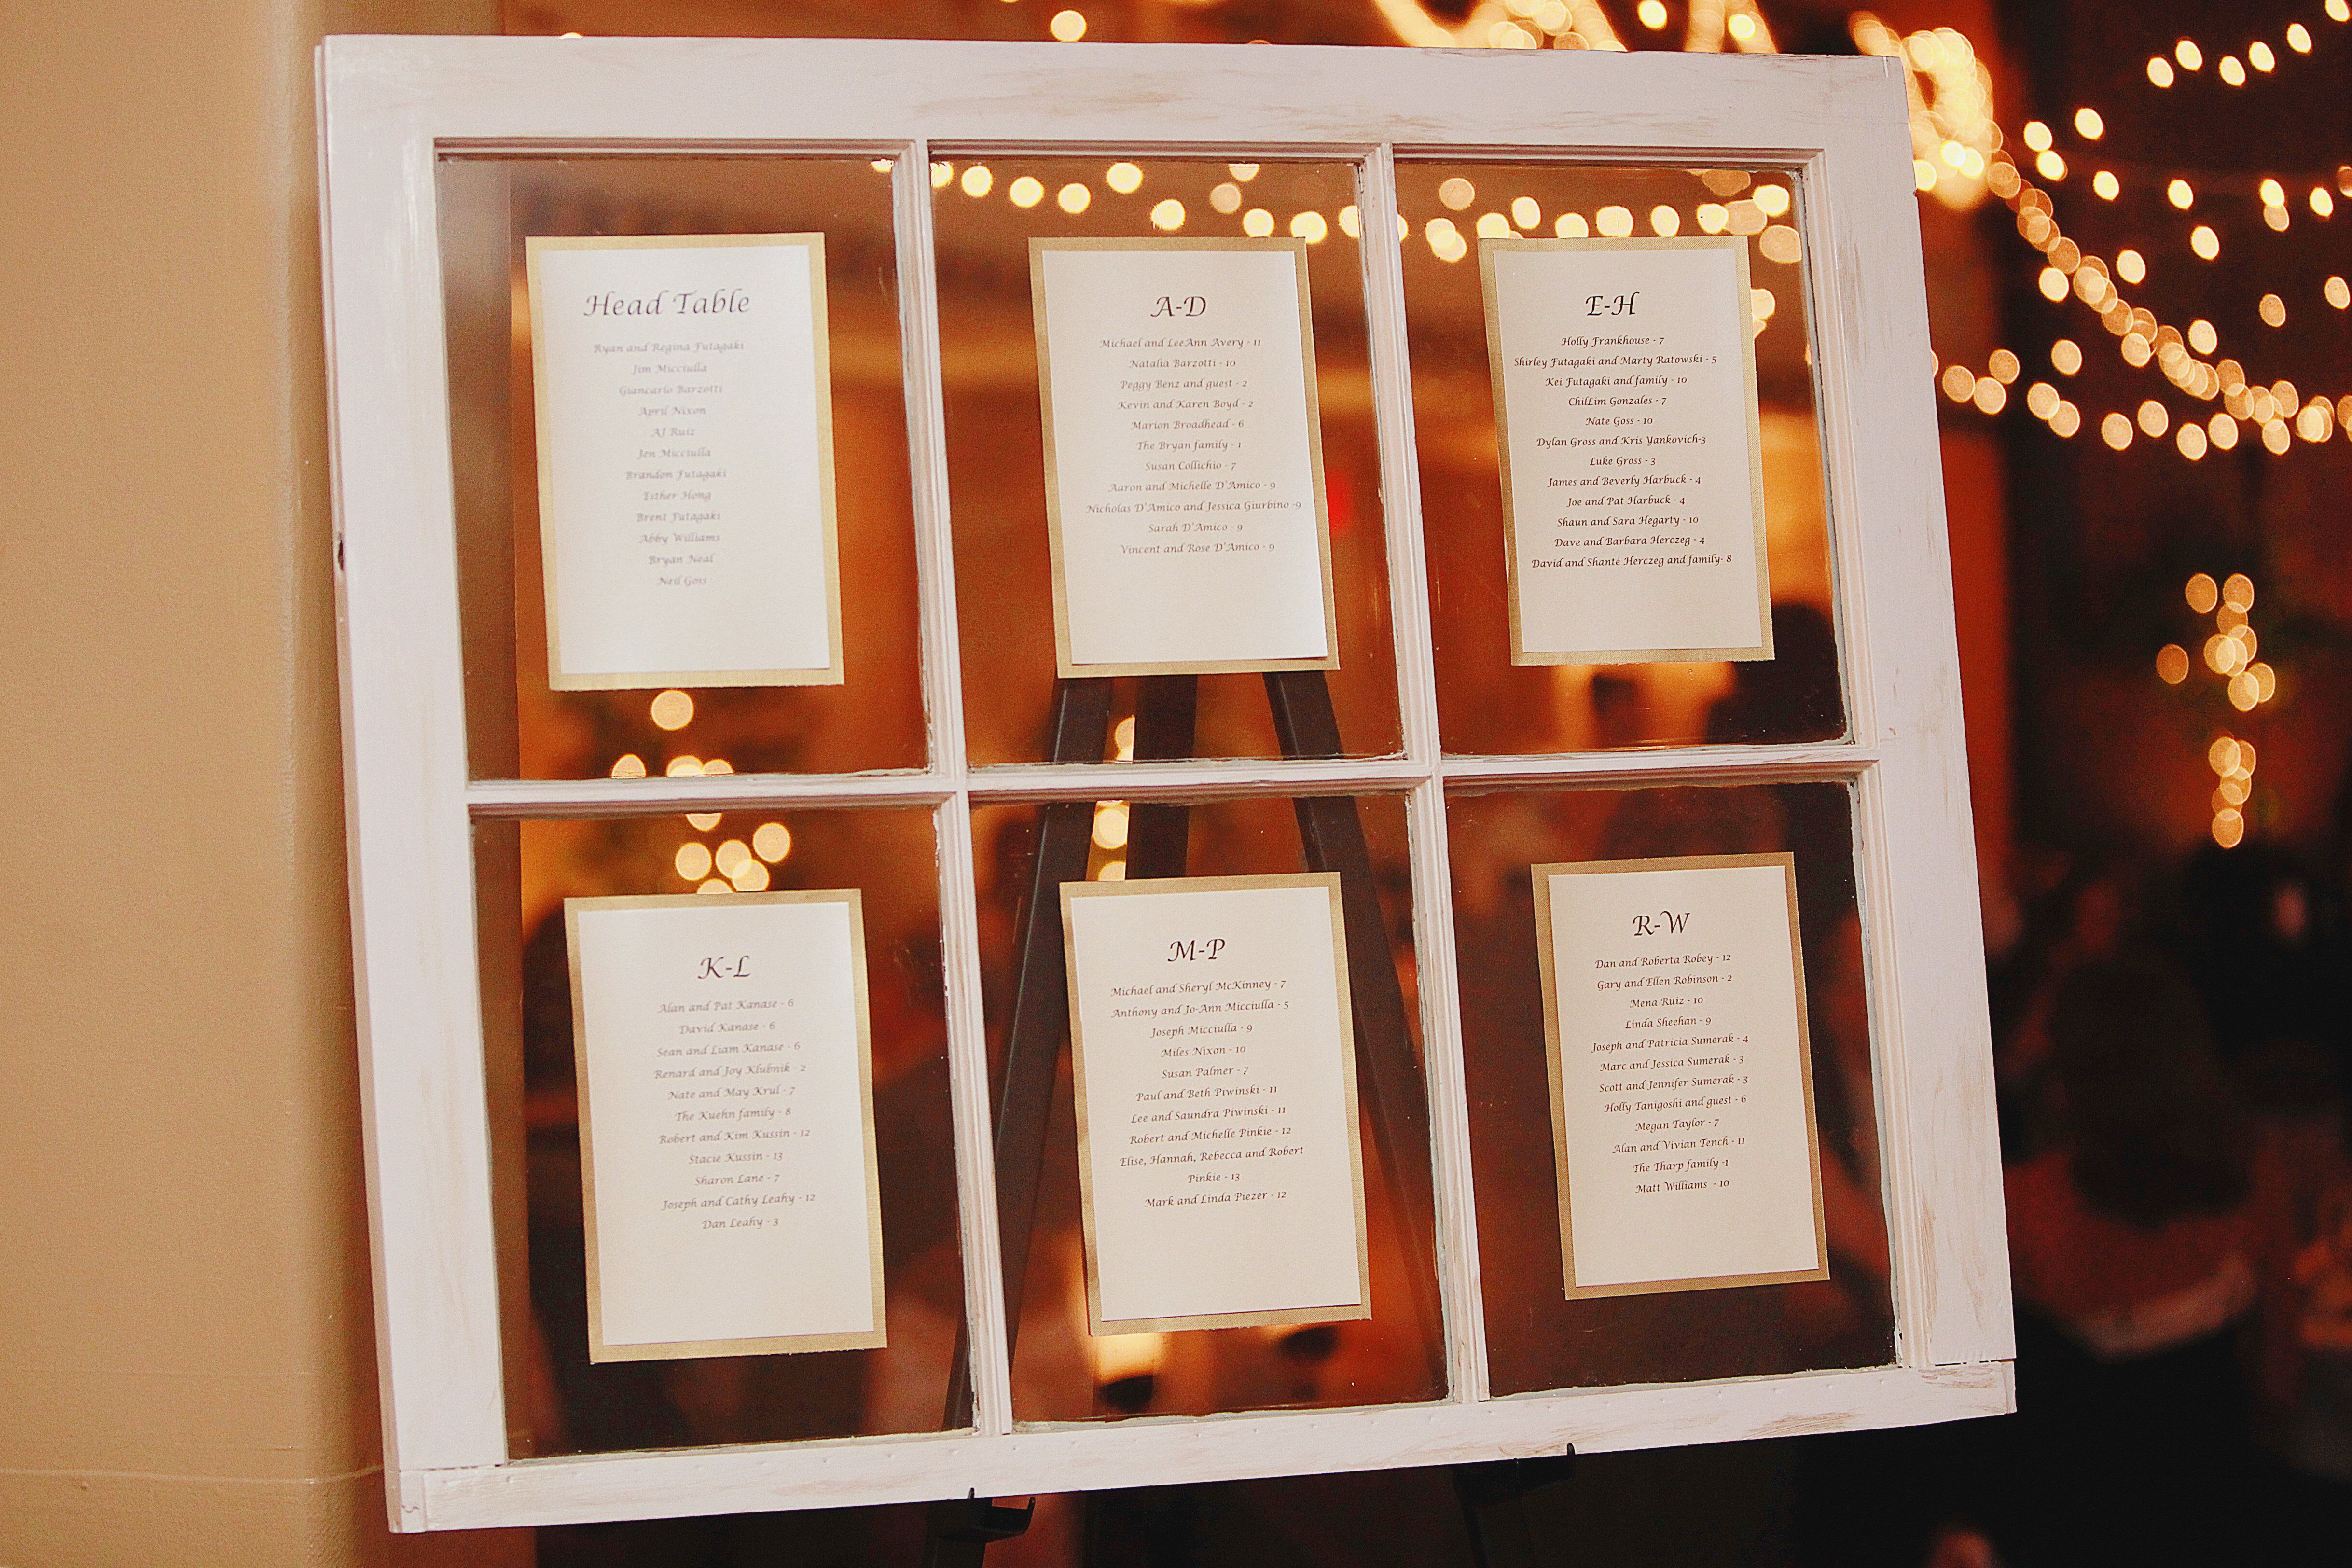 Head Table
Ryan and Regina Futagaki
Jim Micciulla
Giancarlo Barzotti
April Nixon
AJ Ruiz
Jen Micciulla
Brandon Futagaki
Esther Hong
Brent Futagaki
Abby Williams
Bryan Neal
Neil Goss
A-D
Michael and LeeAnn Avery - 11
Natalia Barzotti - 10
Peggy Benz and guest - 2
Kevin and Karen Boyd - 2
Marion Broadhead - 6
The Bryan family - 1
Susan Collichio - 7
Aaron and Michelle D'Amico - 9
Nicholas D'Amico and Jessica Giurbino -9
Sarah D'Amico - 9
Vincent and Rose D'Amico - 9
E-H
Holly Frankhouse - 7
Shirley Futagaki and Marty Ratowski - 5
Kei Futagaki and family - 10
ChilLim Gonzales - 7
Nate Goss - 10
Dylan Gross and Kris Yankovich-3
Luke Gross - 3
James and Beverly Harbuck - 4
Joe and Pat Harbuck - 4
Shaun and Sara Hegarty - 10
Dave and Barbara Herczeg - 4
David and Shanté Herczeg and family- 8
K-L
Alan and Pat Kanase - 6
David Kanase - 6
Sean and Liam Kanase - 6
Renard and Joy Klubnik - 2
Nate and May Krul - 7
The Kuehn family - 8
Robert and Kim Kussin - 12
Stacie Kussin - 13
Sharon Lane - 7
Joseph and Cathy Leahy - 12
Dan Leahy - 3
M-P
Michael and Sheryl McKinney - 7
Anthony and Jo-Ann Micciulla - 5
Joseph Micciulla - 9
Miles Nixon - 10
Susan Palmer - 7
Paul and Beth Piwinski - 11
Lee and Saundra Piwinski - 11
Robert and Michelle Pinkie - 12
Elise, Hannah, Rebecca and Robert
Pinkie - 13
Mark and Linda Piezer - 12
R-W
Dan and Roberta Robey - 12
Gary and Ellen Robinson - 2
Mena Ruiz - 10
Linda Sheehan - 9
Joseph and Patricia Sumerak - 4
Marc and Jessica Sumerak - 3
Scott and Jennifer Sumerak - 3
Holly Tanigoshi and guest - 6
Megan Taylor - 7
Alan and Vivian Tench - 11
The Tharp family -1
Matt Williams - 10